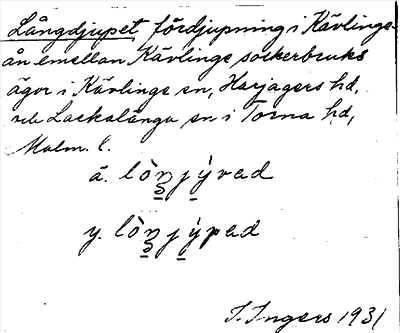 Långdjupet, fördjupning i Kävlinge-
ån emellan Kävlinge sockerbruks
ägor i Kävlinge sn, Harjagers hd.
och Lackalänga sn i Torna hd,
Malm. l.
ä. lòn̥jývad
y. lòn̥jýpad
I. Ingers 1931